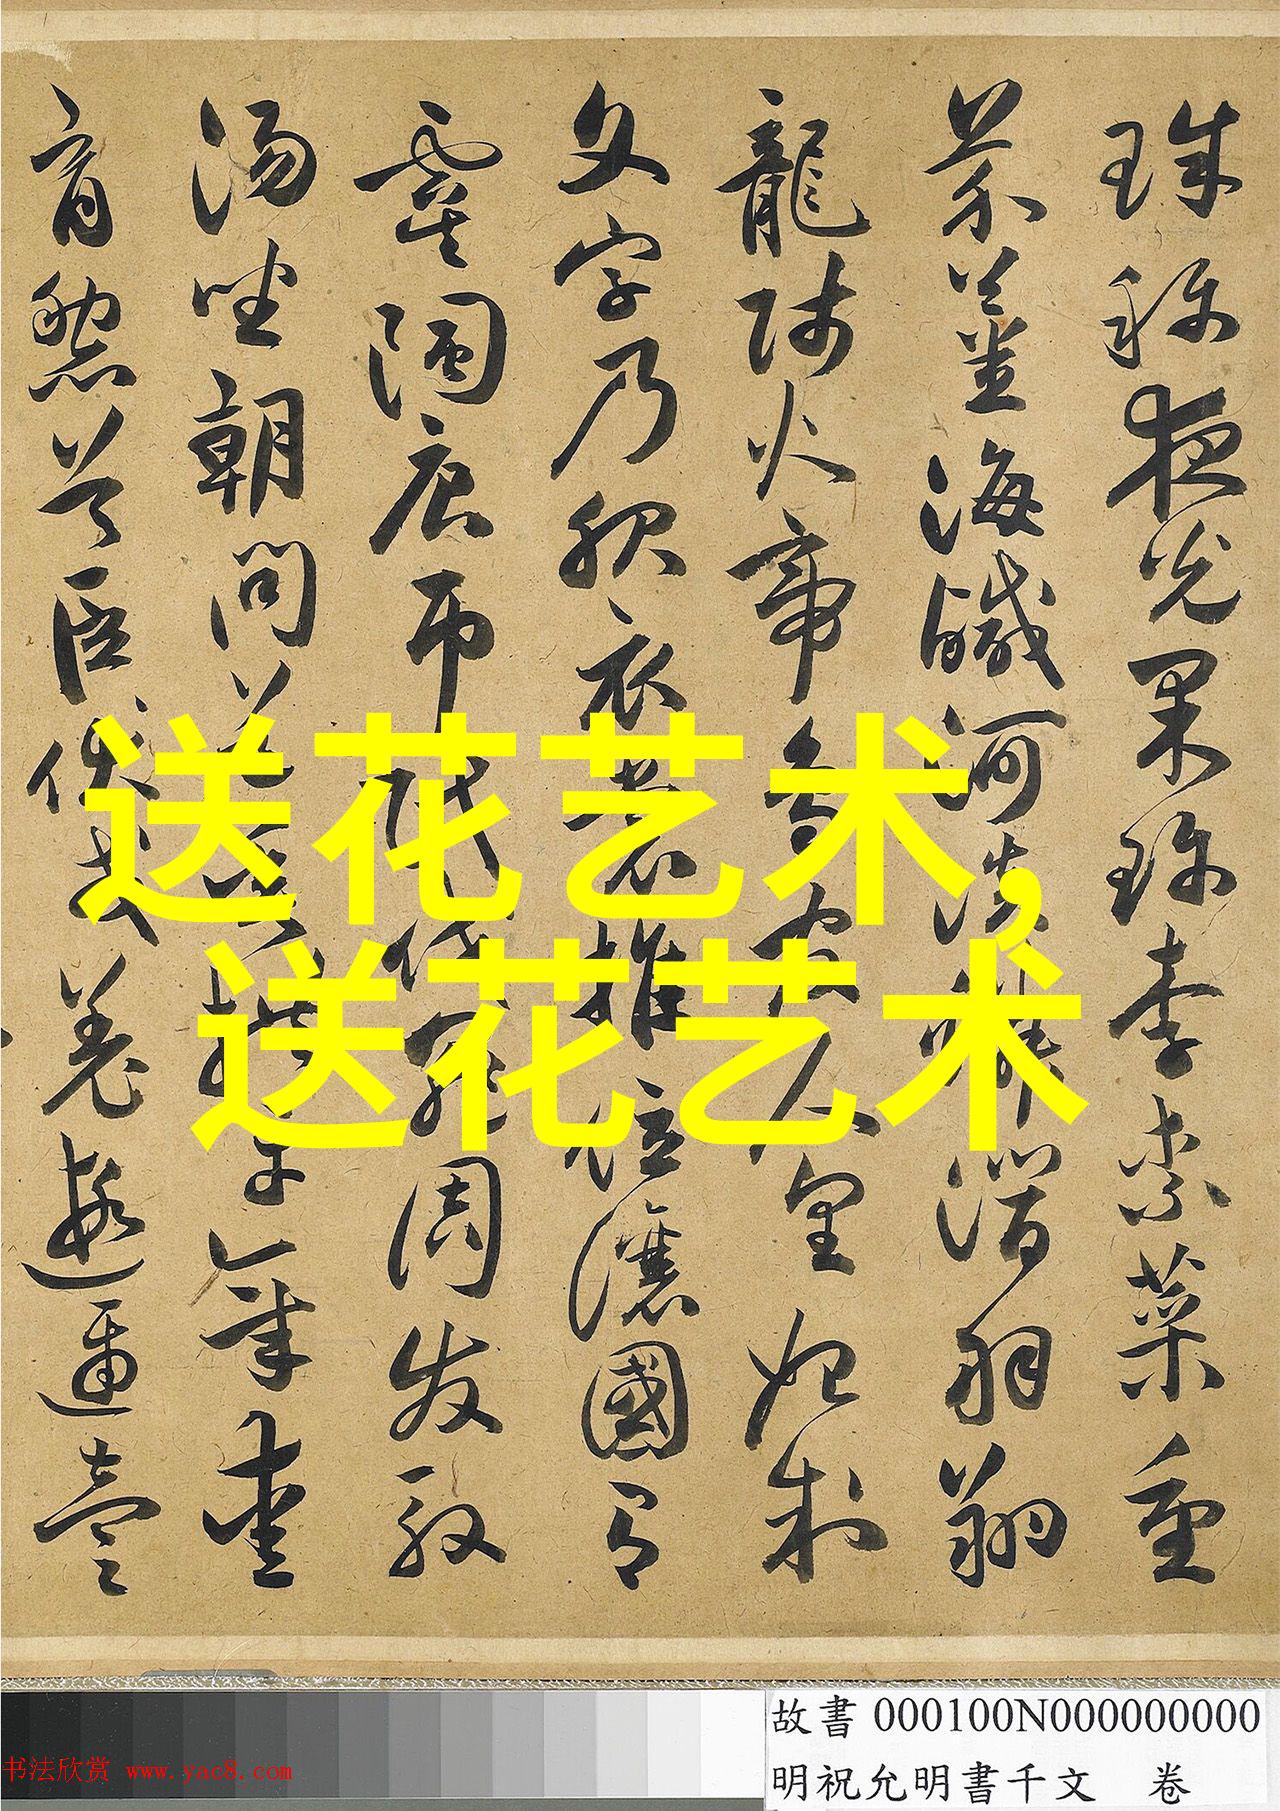 珠稱夜光果珍李柰菜重
芥薑海鹹河淡鱗潛羽翔
龍師火帝鳥官人皇始制
文字乃服衣裳推位讓國有
虞陶唐弔民伐罪周發殷
湯坐朝問道垂拱平章愛
育黎首臣伏戎羌遐邇壹
送花艺术,
送花艺术
故書 000100N000000000
明祝允明書千文 卷
书法欣赏 www.yac8.com